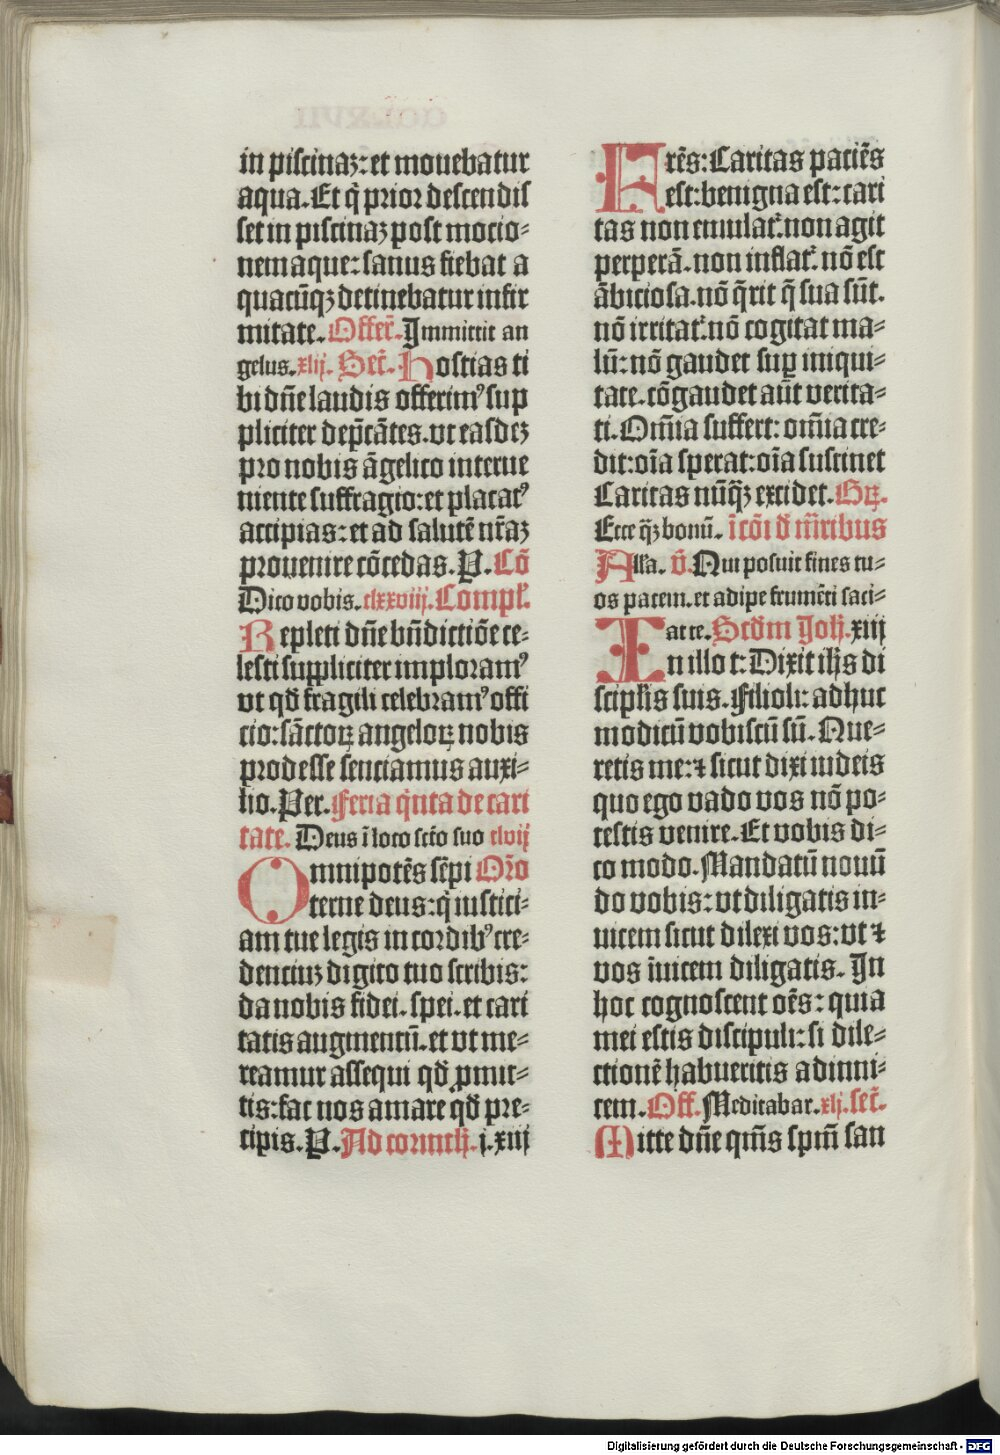 in piscinaz: et mouebatur
aqua. Et q̇ prior descendis
set in piscinaz post mocio⸗
nem aque: sanus fiebat a
quacūqꝫ detinebatur infir
mitate. Offer̄. Immittit an
gelus. xlij. Secr̄. Hostias ti
bi dn̄e laudis offerimꝰ sup
pliciter dep̄cātes. vt easdeꝫ
pro nobis āgelico interue
niente suffragio: et placatꝰ
accipias: et ad salutē nr̄aꝫ
prouenire cōcedas. P. Cō
Dico vobis. clxxviij. Compl̄.
Repleti dn̄e bn̄dictiōe ce⸗
lesti suppliciter imploramꝰ
vt qd̄ fragili celebramꝰ offi
cio: sāctoꝝ angeloꝝ nobis
prodesse senciamus auxi⸗
lio. Per. Feria q̇nta de cari
tate. Deus ī loco scto suo clvij
Omnipotēs sēpi Orō
terne deus: q̇ iustici⸗
am tue legis in cordibꝰ cre⸗
denciuꝫ digito tuo scribis:
da nobis fidei. spei. et cari
tatis augmentū. et vt me⸗
reamur assequi qd̄ ꝓmit⸗
tis: fac nos amare qd̄ pre⸗
cipis. P. Ad corinth. j. xiij
Fr̄es: Caritas paciēs
est: benigna est: cari
tas non emulat᷑. non agit
perperā. non inflat᷑. nō est
ābiciosa. nō q̄rit q̄ sua sūt.
nō irritat᷑. nō cogitat ma⸗
lū: nō gaudet suꝑ iniqui⸗
tate. cōgaudet aūt verita⸗
ti. Om̄ia suffert: om̄ia cre⸗
dit: oīa sperat: oīa sustinet
Caritas nūq̄ꝫ excidet. Gꝝ.
Ecce q̄ꝫ bonū. ī cōi d̄ m̄ribus
Alla. v̄. Qui posuit fines tu⸗
os pacem. et adipe frumēti saci⸗
at te. Scd̄m Joh. xiij
In illo t: Dixit ih̄s di
scipl̄is suis. Filioli: adhuc
modicū vobiscū sū. Que⸗
retis me: ⁊ sicut dixi iudeis
quo ego vado vos nō po⸗
testis venire. Et vobis di⸗
co modo. Mandatū nouū
do vobis: vt diligatis in⸗
uicem sicut dilexi vos: vt ⁊
vos īuicem diligatis. In
hoc cognoscent oēs: quia
mei estis discipuli: si dile⸗
ctionē habueritis adinui⸗
cem. Off. Meditabar. xlj. secr̄.
Mitte dn̄e qm̄s spm̄ san
Digitalisierung gefördert durch die Deutsche Forschungsgemeinschaft - DFG